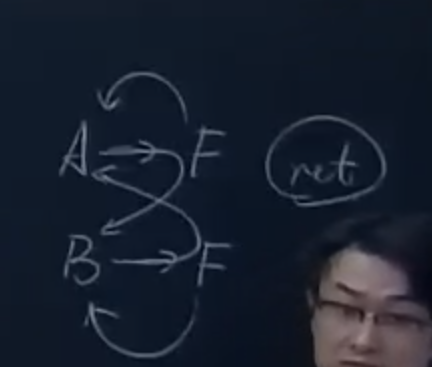 A → F ret
B → F